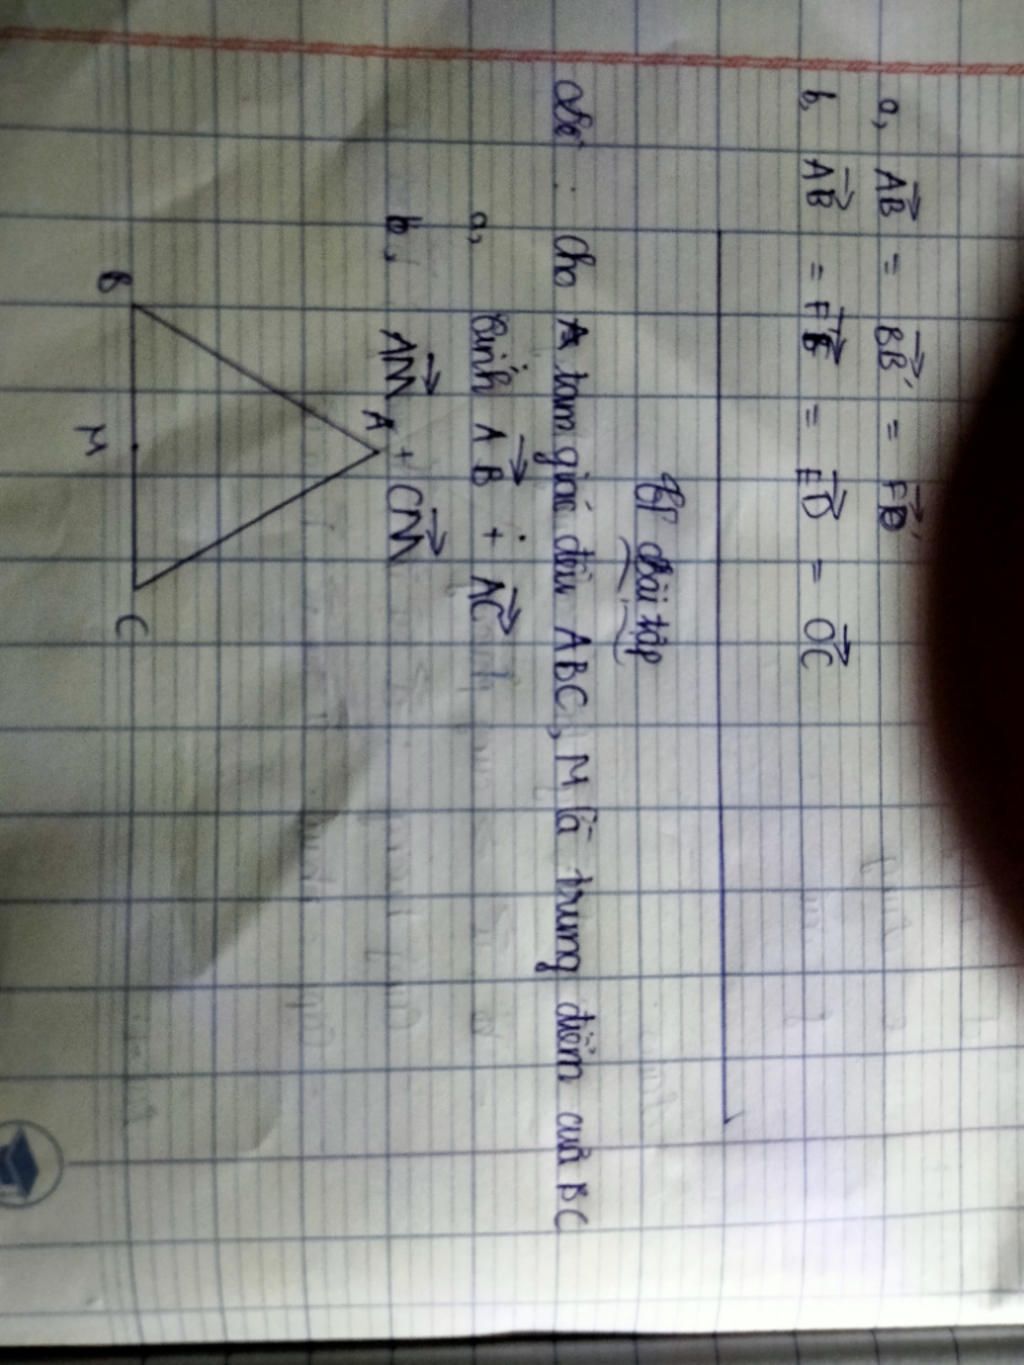 a, AB = BB' = FO'
b, AB = FE = ED = OC
Bài tập
Đề : Cho tam giác đều ABC, M là trung điểm của BC
a, Tính AB + AC
b, AM + CM
A
B
M
C